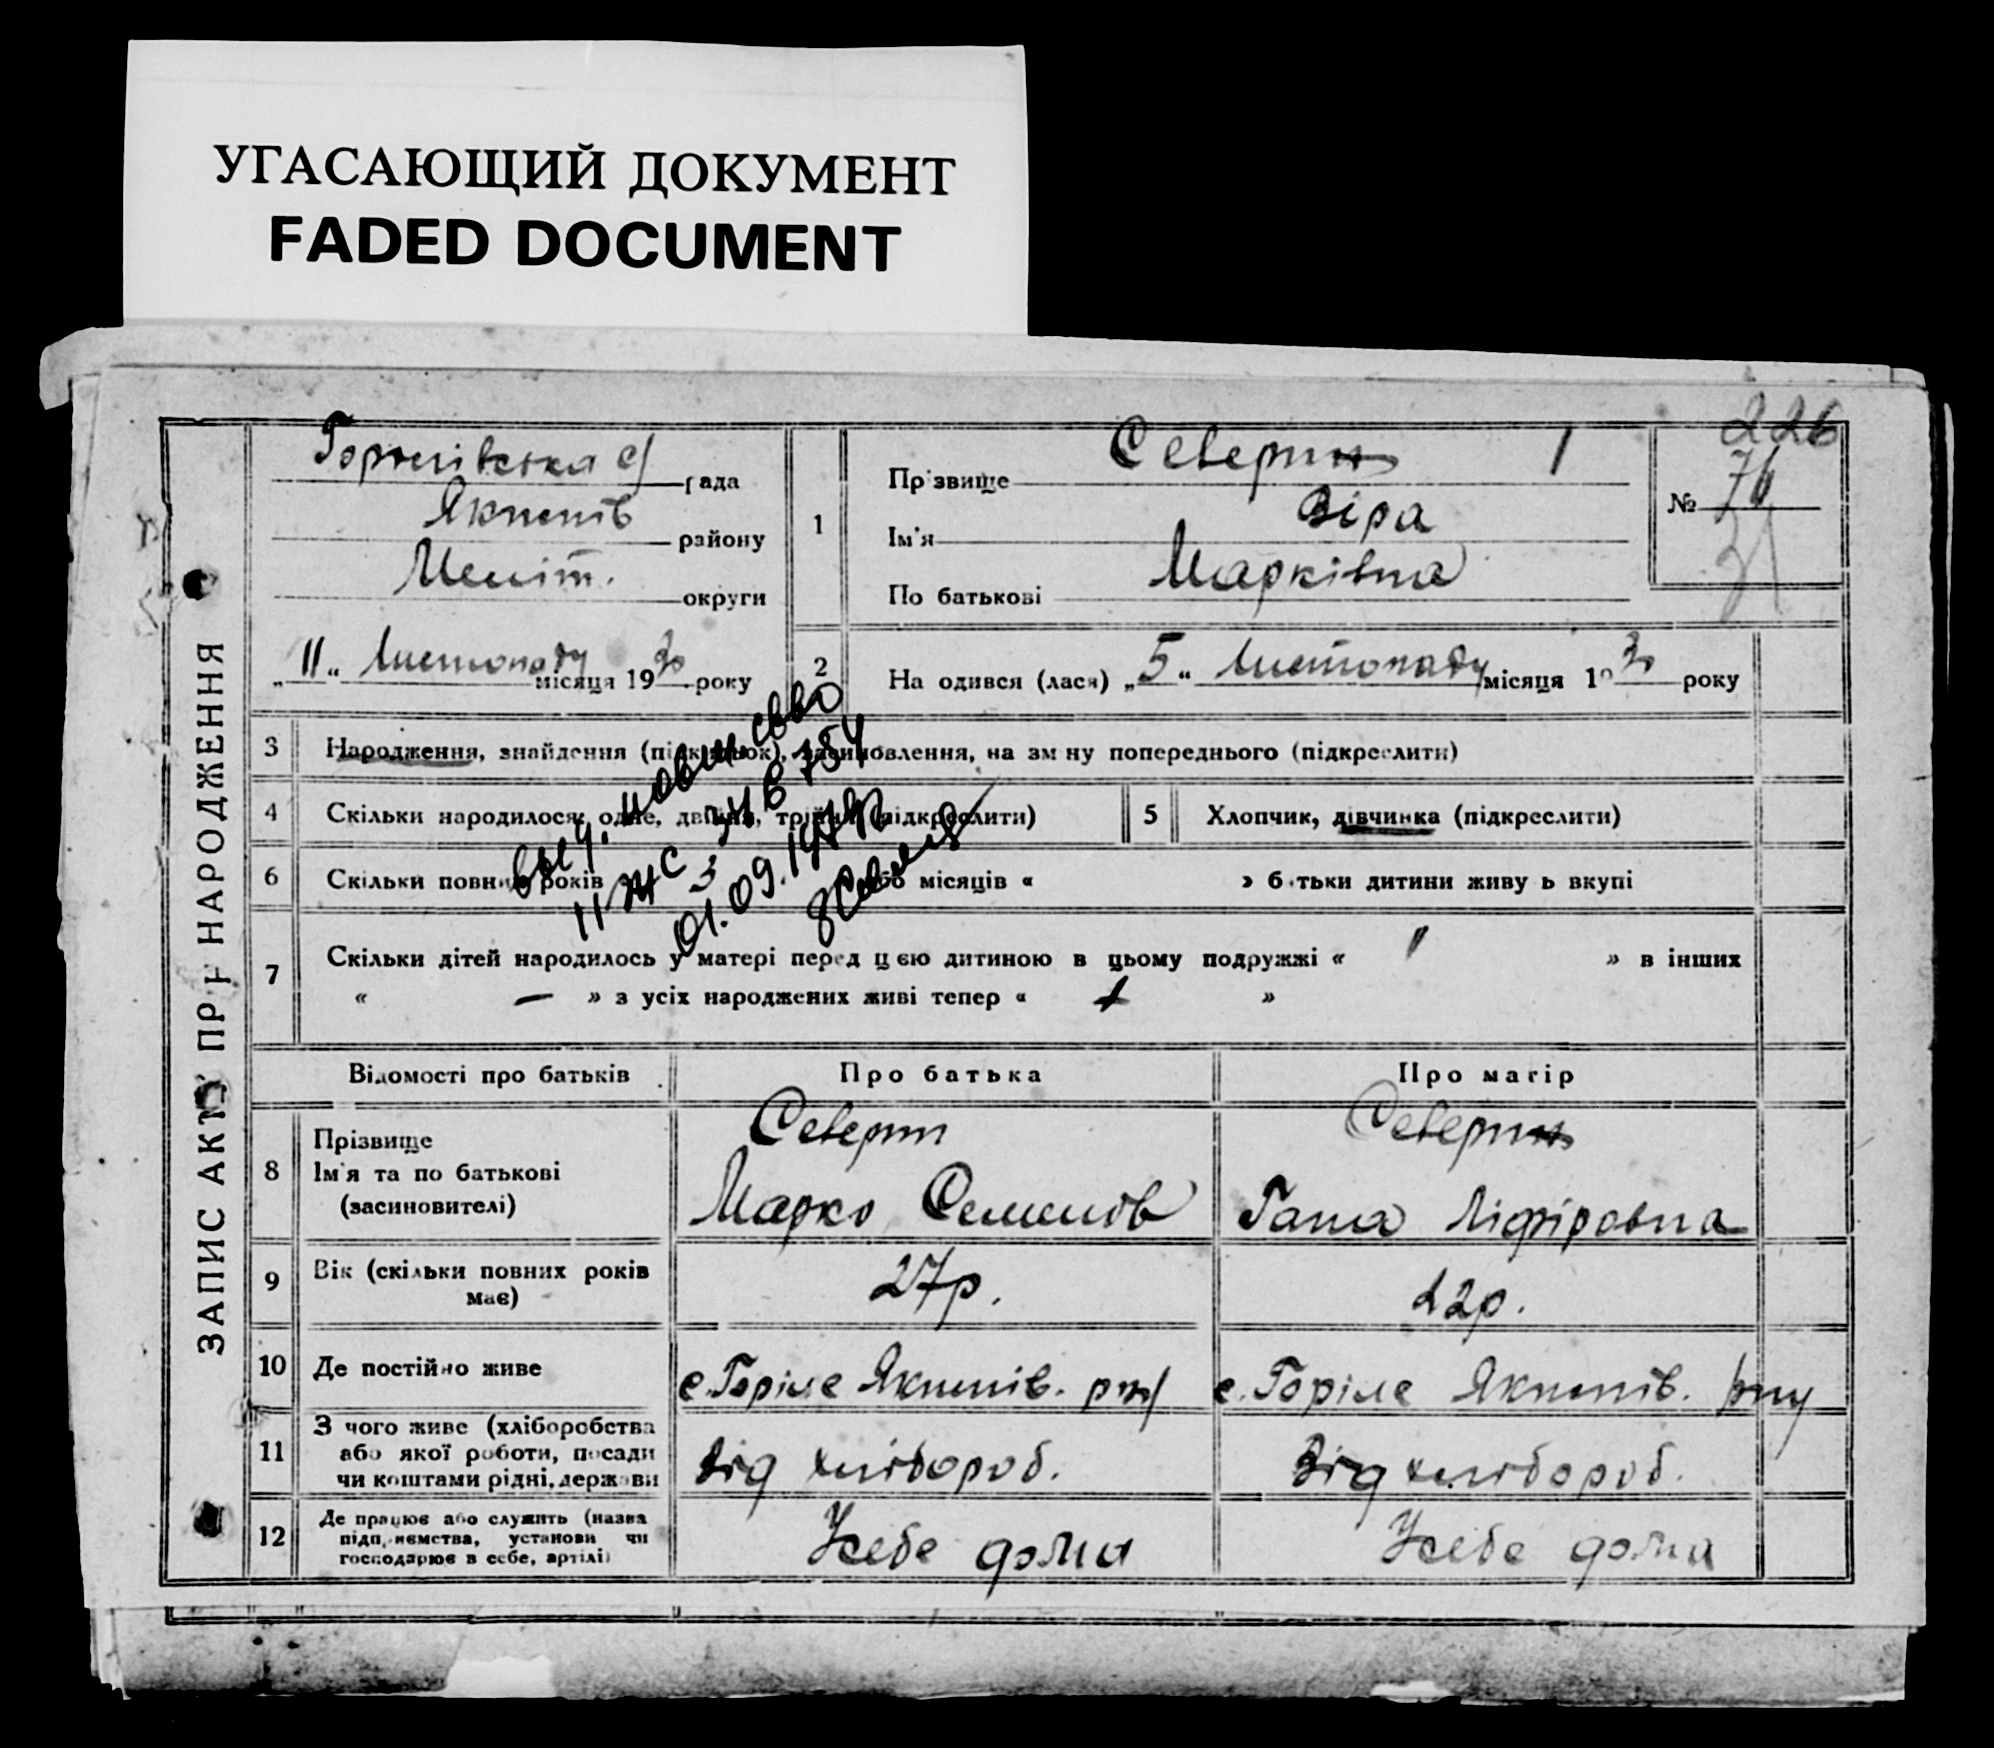 УГАСАЮЩИЙ ДОКУМЕНТ
FADED DOCUMENT
226
ЗАПИС АКТУ ПРО НАРОДЖЕННЯ
рада
району
округи
"11" Листопаду місяця 1930 року
1
Прізвище Северин
Ім'я Віра
По батькові Марківна
№ 71
31
2
Народився (лася) "5" Листопаду місяця 1930 року
3 Народження, знайдення (підкидьок), засиновлення, на зміну попереднього (підкреслити)
4 Скільки народилося: одне, двійня, трійня (підкреслити)
5 Хлопчик, дівчинка (підкреслити)
6 Скільки повних років або місяців « » батьки дитини живуть вкупі
7 Скільки дітей народилось у матері перед цією дитиною в цьому подружжі « 1 » в інших
« — » з усіх народжених живі тепер « 1 »
01.09.
Відомості про батьків Про батька Про матір
8 Прізвище Северин Северин
Ім'я та по батькові Марко Семенов Гана
(засиновителі)
9 Вік (скільки повних років має) 27р. 22р.
10 Де постійно живе с. Горіле с. Горіле
11 З чого живе (хліборобства
або якої роботи, посади
чи коштами рідні, держави
Від хлібороб. Від хлібороб.
12 Де працює або служить (назва
підприємства, установи чи
господарює в себе, артілі)
У себе дома У себе дома